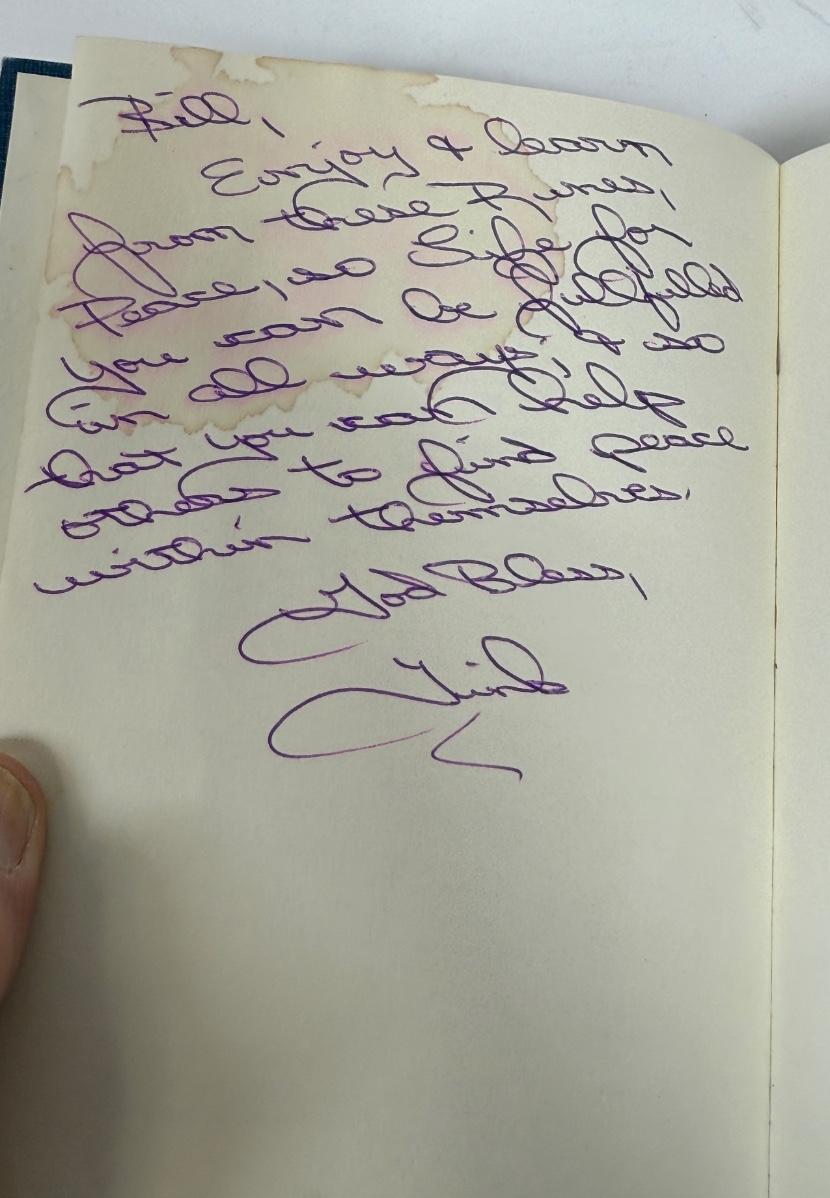 Bill,
Enjoy & learn
from these Runes,
Peace, so life for
you can be fullfilled
in all ways, & so
that you can help
others to find peace
within themselves.
God Bless,